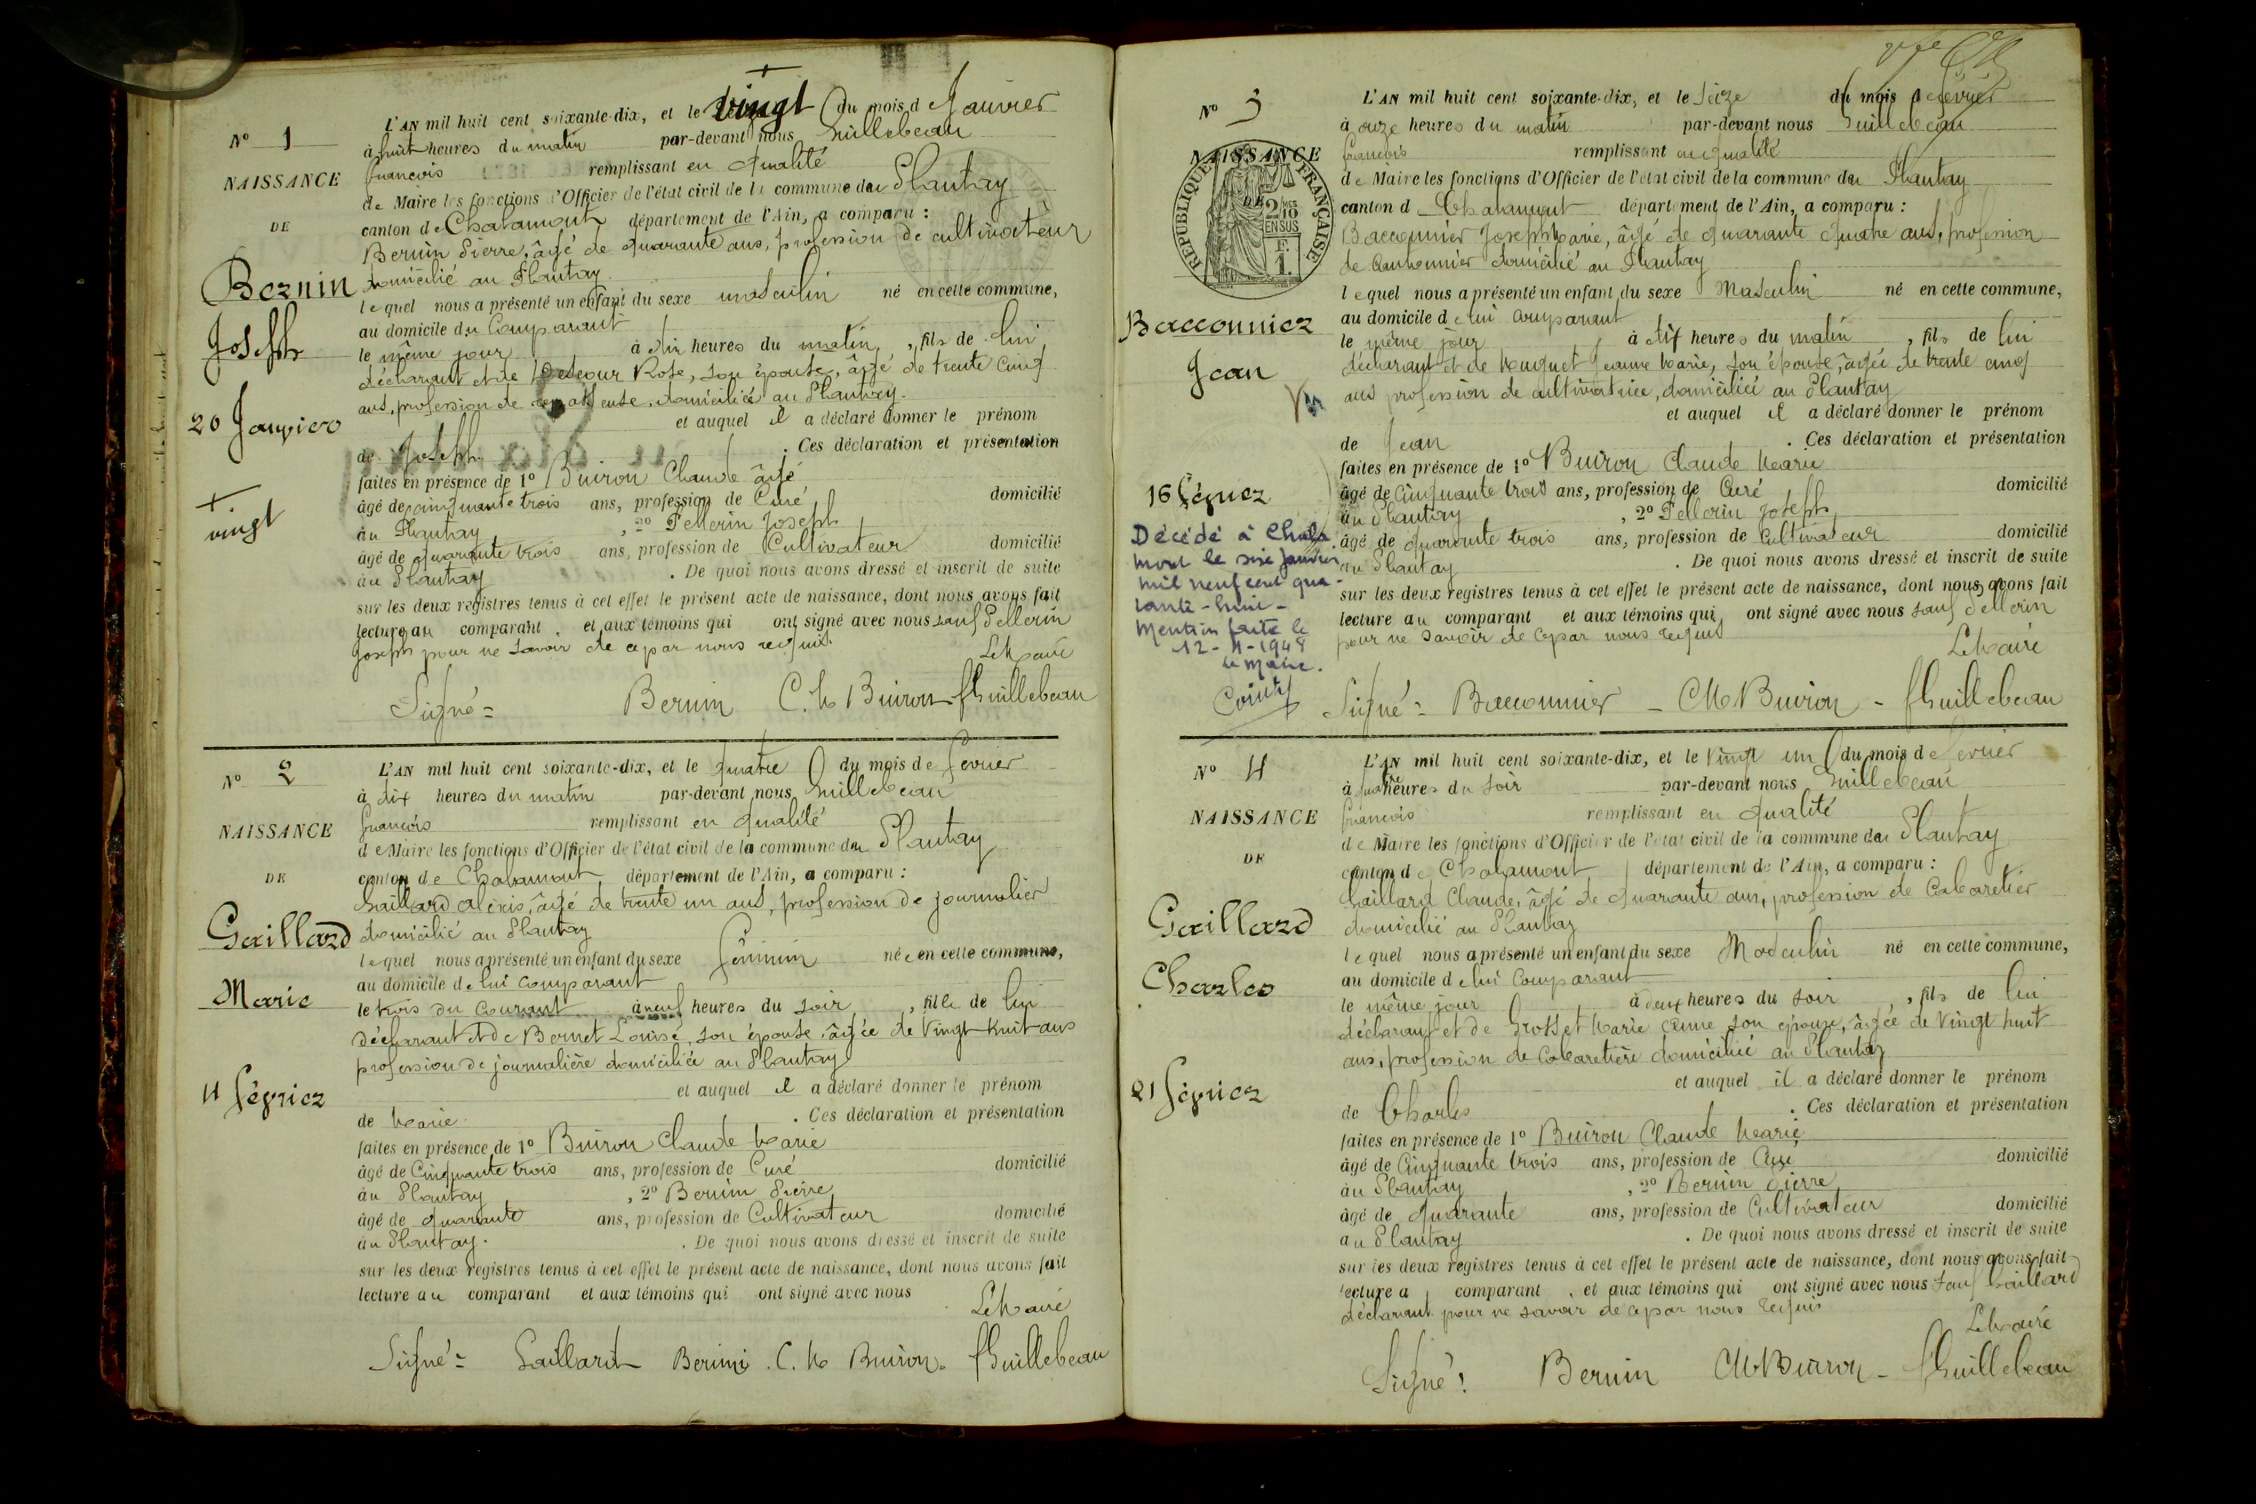 N° 1
NAISSANCE
DE
Bernin
Joseph
20 Janvier
vingt
L'AN mil huit cent soixante-dix, et le vingt du mois d Janvier
à huit heures du matin par-devant nous Guillebeau
françois remplissant en qualité
de Maire les fonctions d'Officier de l'état civil de la commune du Plantay
canton de Chalamont département de l'Ain, a comparu :
Bernin Pierre, âgé de quarante ans, profession de cultivateur
domicilié au Plantay
lequel nous a présenté un enfant du sexe masculin né en cette commune,
au domicile du Comparant
le même jour à heures du matin, fils de lui
déclarant et de Rose, son épouse, âgé de trente cinq
ans, profession de domiciliée au Plantay.
et auquel il a déclaré donner le prénom
de Joseph . Ces déclaration et présentation
faites en présence de 1° Buiron Claude âgé
âgé de cinquante trois ans, profession de Curé domicilié
au Plantay , 2° Pellerin Joseph
âgé de quarante trois ans, profession de Cultivateur domicilié
au Plantay . De quoi nous avons dressé et inscrit de suite
sur les deux registres tenus à cet effet le présent acte de naissance, dont nous avons fait
lecture au comparant , et aux témoins qui ont signé avec nous sauf Pellerin
Joseph pour ne savoir de ce par nous requis.
Le Maire
Signé = Bernin C. M Buiron f Guillebeau
N° 2
NAISSANCE
DE
Gaillard
Marie
4 février
L'AN mil huit cent soixante-dix, et le quatre du mois de fevrier
à dix heures du matin par-devant nous Guillebeau
françois remplissant en qualité
de Maire les fonctions d'Officier de l'état civil de la commune du Plantay
canton de Chalamont département de l'Ain, a comparu :
Gaillard Alexis, âgé de trente un ans, profession de journalier
domicilié au Plantay
lequel nous a présenté un enfant du sexe féminin née en cette commune,
au domicile de lui comparant
le trois du courant à neuf heures du soir , fille de lui
déclarant et de Bernet Louise, son épouse, âgée de vingt huit ans
profession de journalière domiciliée au Plantay
et auquel il a déclaré donner le prénom
de Marie . Ces déclaration et présentation
faites en présence de 1° Buiron Claude Marie
âgé de Cinquante trois ans, profession de Curé domicilié
au Plantay , 2° Bernin Pierre
âgé de quarante ans, profession de Cultivateur domicilié
au Plantay. . De quoi nous avons dressé et inscrit de suite
sur les deux registres tenus à cet effet le présent acte de naissance, dont nous avons fait
lecture au comparant et aux témoins qui ont signé avec nous
Le Maire
Signé = Gaillard Bernin . C. M Buiron . f Guillebeau
N° 3
NAISSANCE
DE
RÉPUBLIQUE FRANÇAISE
2/10 EN SUS
F.
1.
Bacconnier
Jean
16 février
Décédé à Chala-
mont le six janvier
mil neuf cent qua-
rante-huit-
Mention faite le
Le Maire.
L'AN mil huit cent soixante-dix, et le seize du mois d fevrier
à onze heures du matin par-devant nous Guillebeau
françois remplissant en qualité
de Maire les fonctions d'Officier de l'état civil de la commune du Plantay
canton d Chalamont département de l'Ain, a comparu :
Bacconnier Joseph Marie, âgé de quarante quatre ans, profession
de Cantonnier domicilié au Plantay
lequel nous a présenté un enfant du sexe Masculin né en cette commune,
au domicile de lui comparant
le même jour à dix heures du matin , fils de lui
déclarant et de Huguet Jeanne Marie, son épouse, âgée de trente cinq
ans profession de cultivatrice, domiciliée au Plantay
et auquel il a déclaré donner le prénom
de Jean . Ces déclaration et présentation
faites en présence de 1° Buiron Claude Marie
âgé de Cinquante trois ans, profession de Curé domicilié
au Plantay , 2° Pellerin Joseph
âgé de quarante trois ans, profession de Cultivateur domicilié
au Plantay . De quoi nous avons dressé et inscrit de suite
sur les deux registres tenus à cet effet le présent acte de naissance, dont nous avons fait
lecture au comparant et aux témoins qui ont signé avec nous sauf Pellerin
pour ne savoir de ce par nous requis
Le Maire
Signé = Bacconnier - CM Buiron - f Guillebeau
N° 4
NAISSANCE
DE
Gaillard
Charles
21 février
L'AN mil huit cent soixante-dix, et le vingt un du mois de fevrier
à quatre heures du soir par-devant nous Guillebeau
françois remplissant en qualité
de Maire les fonctions d'Officier de l'état civil de la commune du Plantay
canton de Chalamont département de l'Ain, a comparu :
Gaillard Claude, âgé de quarante ans, profession de Cabaretier
domicilié au Plantay
lequel nous a présenté un enfant du sexe Masculin né en cette commune,
au domicile de lui Comparant
le même jour à deux heures du soir , fils de lui
déclarant et de Marie son épouse, âgée de vingt huit
ans, profession de Cabaretière domiciliée au Plantay
et auquel il a déclaré donner le prénom
de Charles . Ces déclaration et présentation
faites en présence de 1° Buiron Claude Marie
âgé de Cinquante trois ans, profession de Curé domicilié
au Plantay , 2° Bernin Pierre
âgé de quarante ans, profession de Cultivateur domicilié
au Plantay . De quoi nous avons dressé et inscrit de suite
sur les deux registres tenus à cet effet le présent acte de naissance, dont nous avons fait
lecture a comparant , et aux témoins qui ont signé avec nous sauf Gaillard
déclarant pour ne savoir de ce par nous requis
Le Maire
Signé : Bernin CM Buiron - f Guillebeau